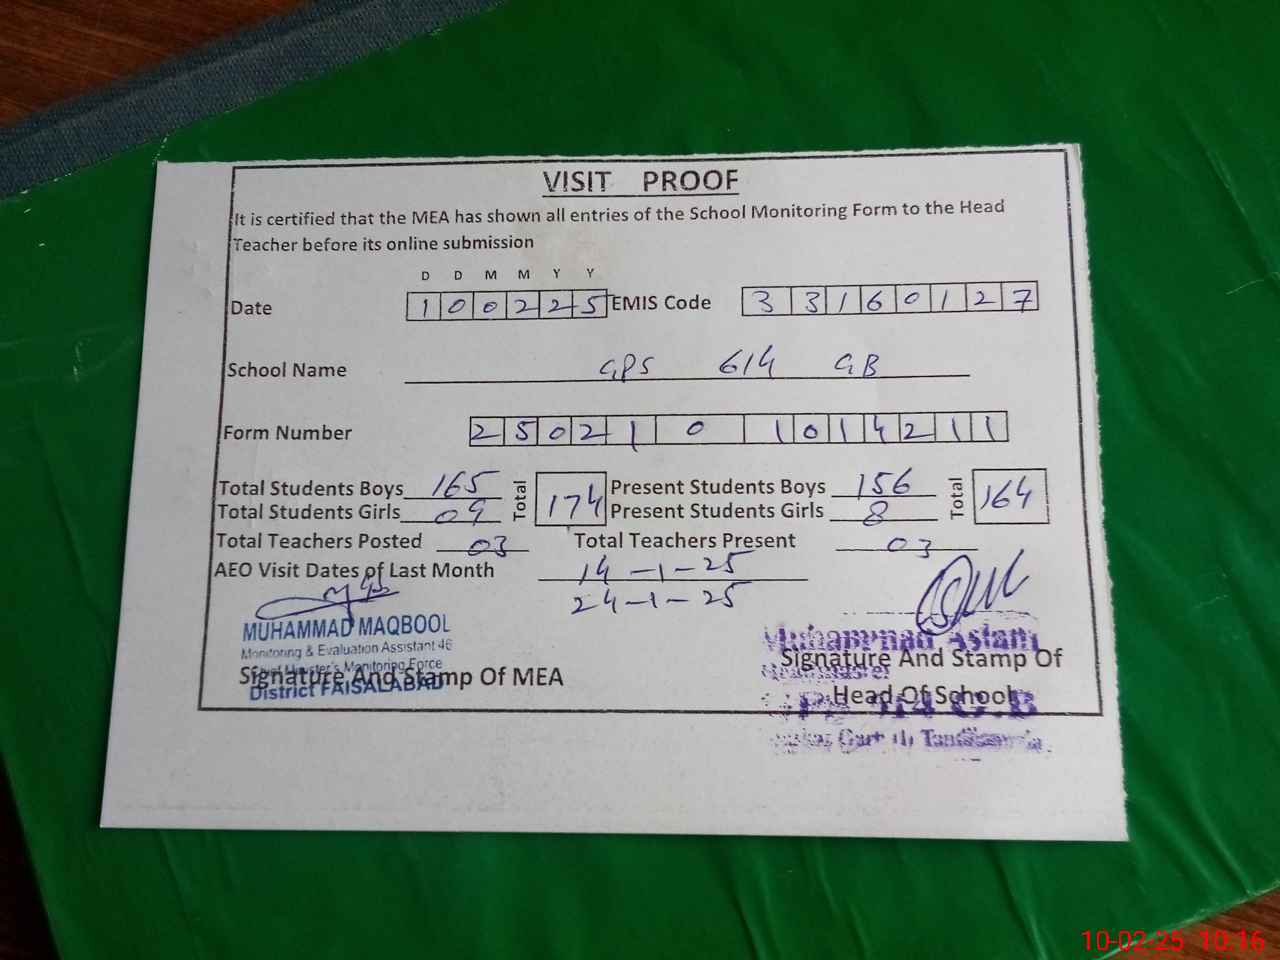 VISIT PROOF
It is certified that the MEA has shown all entries of the School Monitoring Form to the Head
Teacher before its online submission
D D M M Y Y
Date 1 0 0 2 2 5 EMIS Code 3 3 1 6 0 1 2 7
School Name GPS 614 GB
Form Number 2 5 0 2 1 0 1 0 1 4 2 1 1
Total Students Boys 165 Total 174 Present Students Boys 156 Total 164
Total Students Girls 09 Present Students Girls 8
Total Teachers Posted 03 Total Teachers Present 03
AEO Visit Dates of Last Month 14-1-25
24-1-25
MUHAMMAD MAQBOOL
Monitoring & Evaluation Assistant 46
Minister's Monitoring Force
District FAISALABAD
Signature And Stamp Of MEA
Muhammad Aslam
Signature And Stamp Of
Headmaster
Head Of School
G.B
10-02-25 10:16